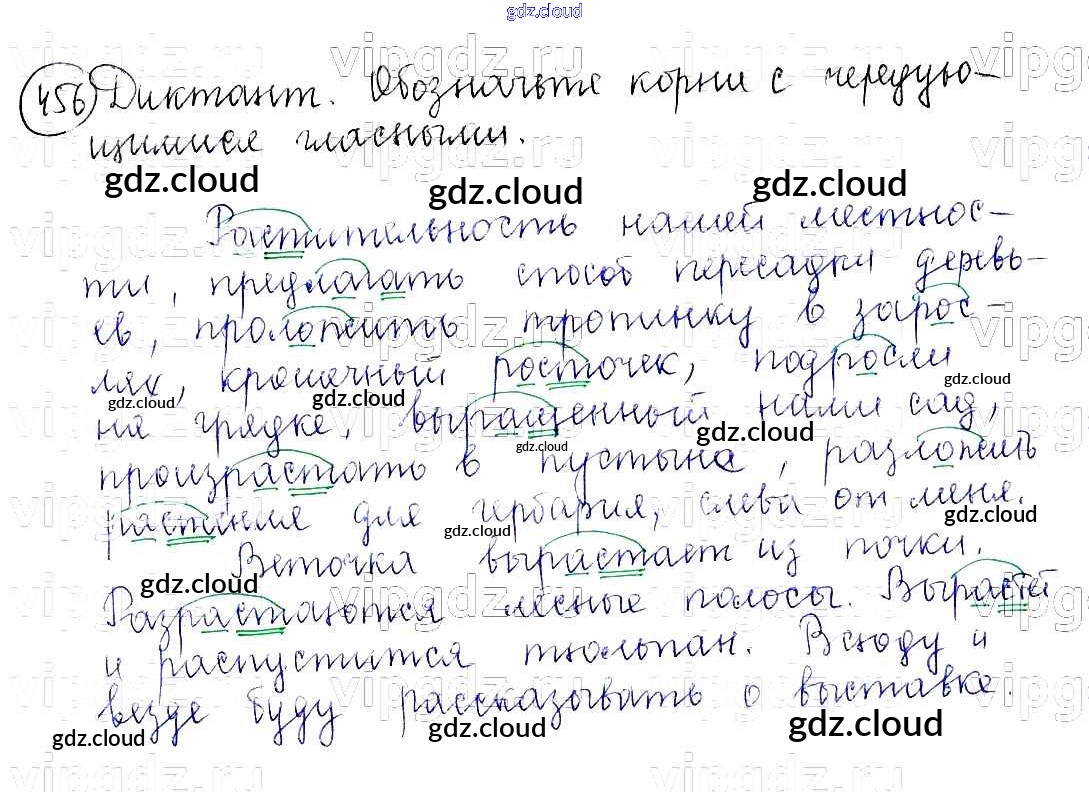 gdz.cloud
456 Диктант. Обозначьте корни с чередую-
щимися гласными.
gdz.cloud gdz.cloud gdz.cloud
Растительность нашей местнос-
ти, предлагать способ пересадки деревь-
ев, проложить тропинку в зарос-
лях, крошечный росточек, подросли
gdz.cloud gdz.cloud gdz.cloud
на грядке, выращенный нами сад,
gdz.cloud gdz.cloud
произрастать в пустыне, разложить
растения для гербария, слева от меня.
gdz.cloud gdz.cloud
Веточка вырастает из почки.
gdz.cloud
Разрастаются лесные полосы. Вырастей
и распустится тюльпан. Всюду и
везде буду рассказывать о выставке.
gdz.cloud gdz.cloud gdz.cloud